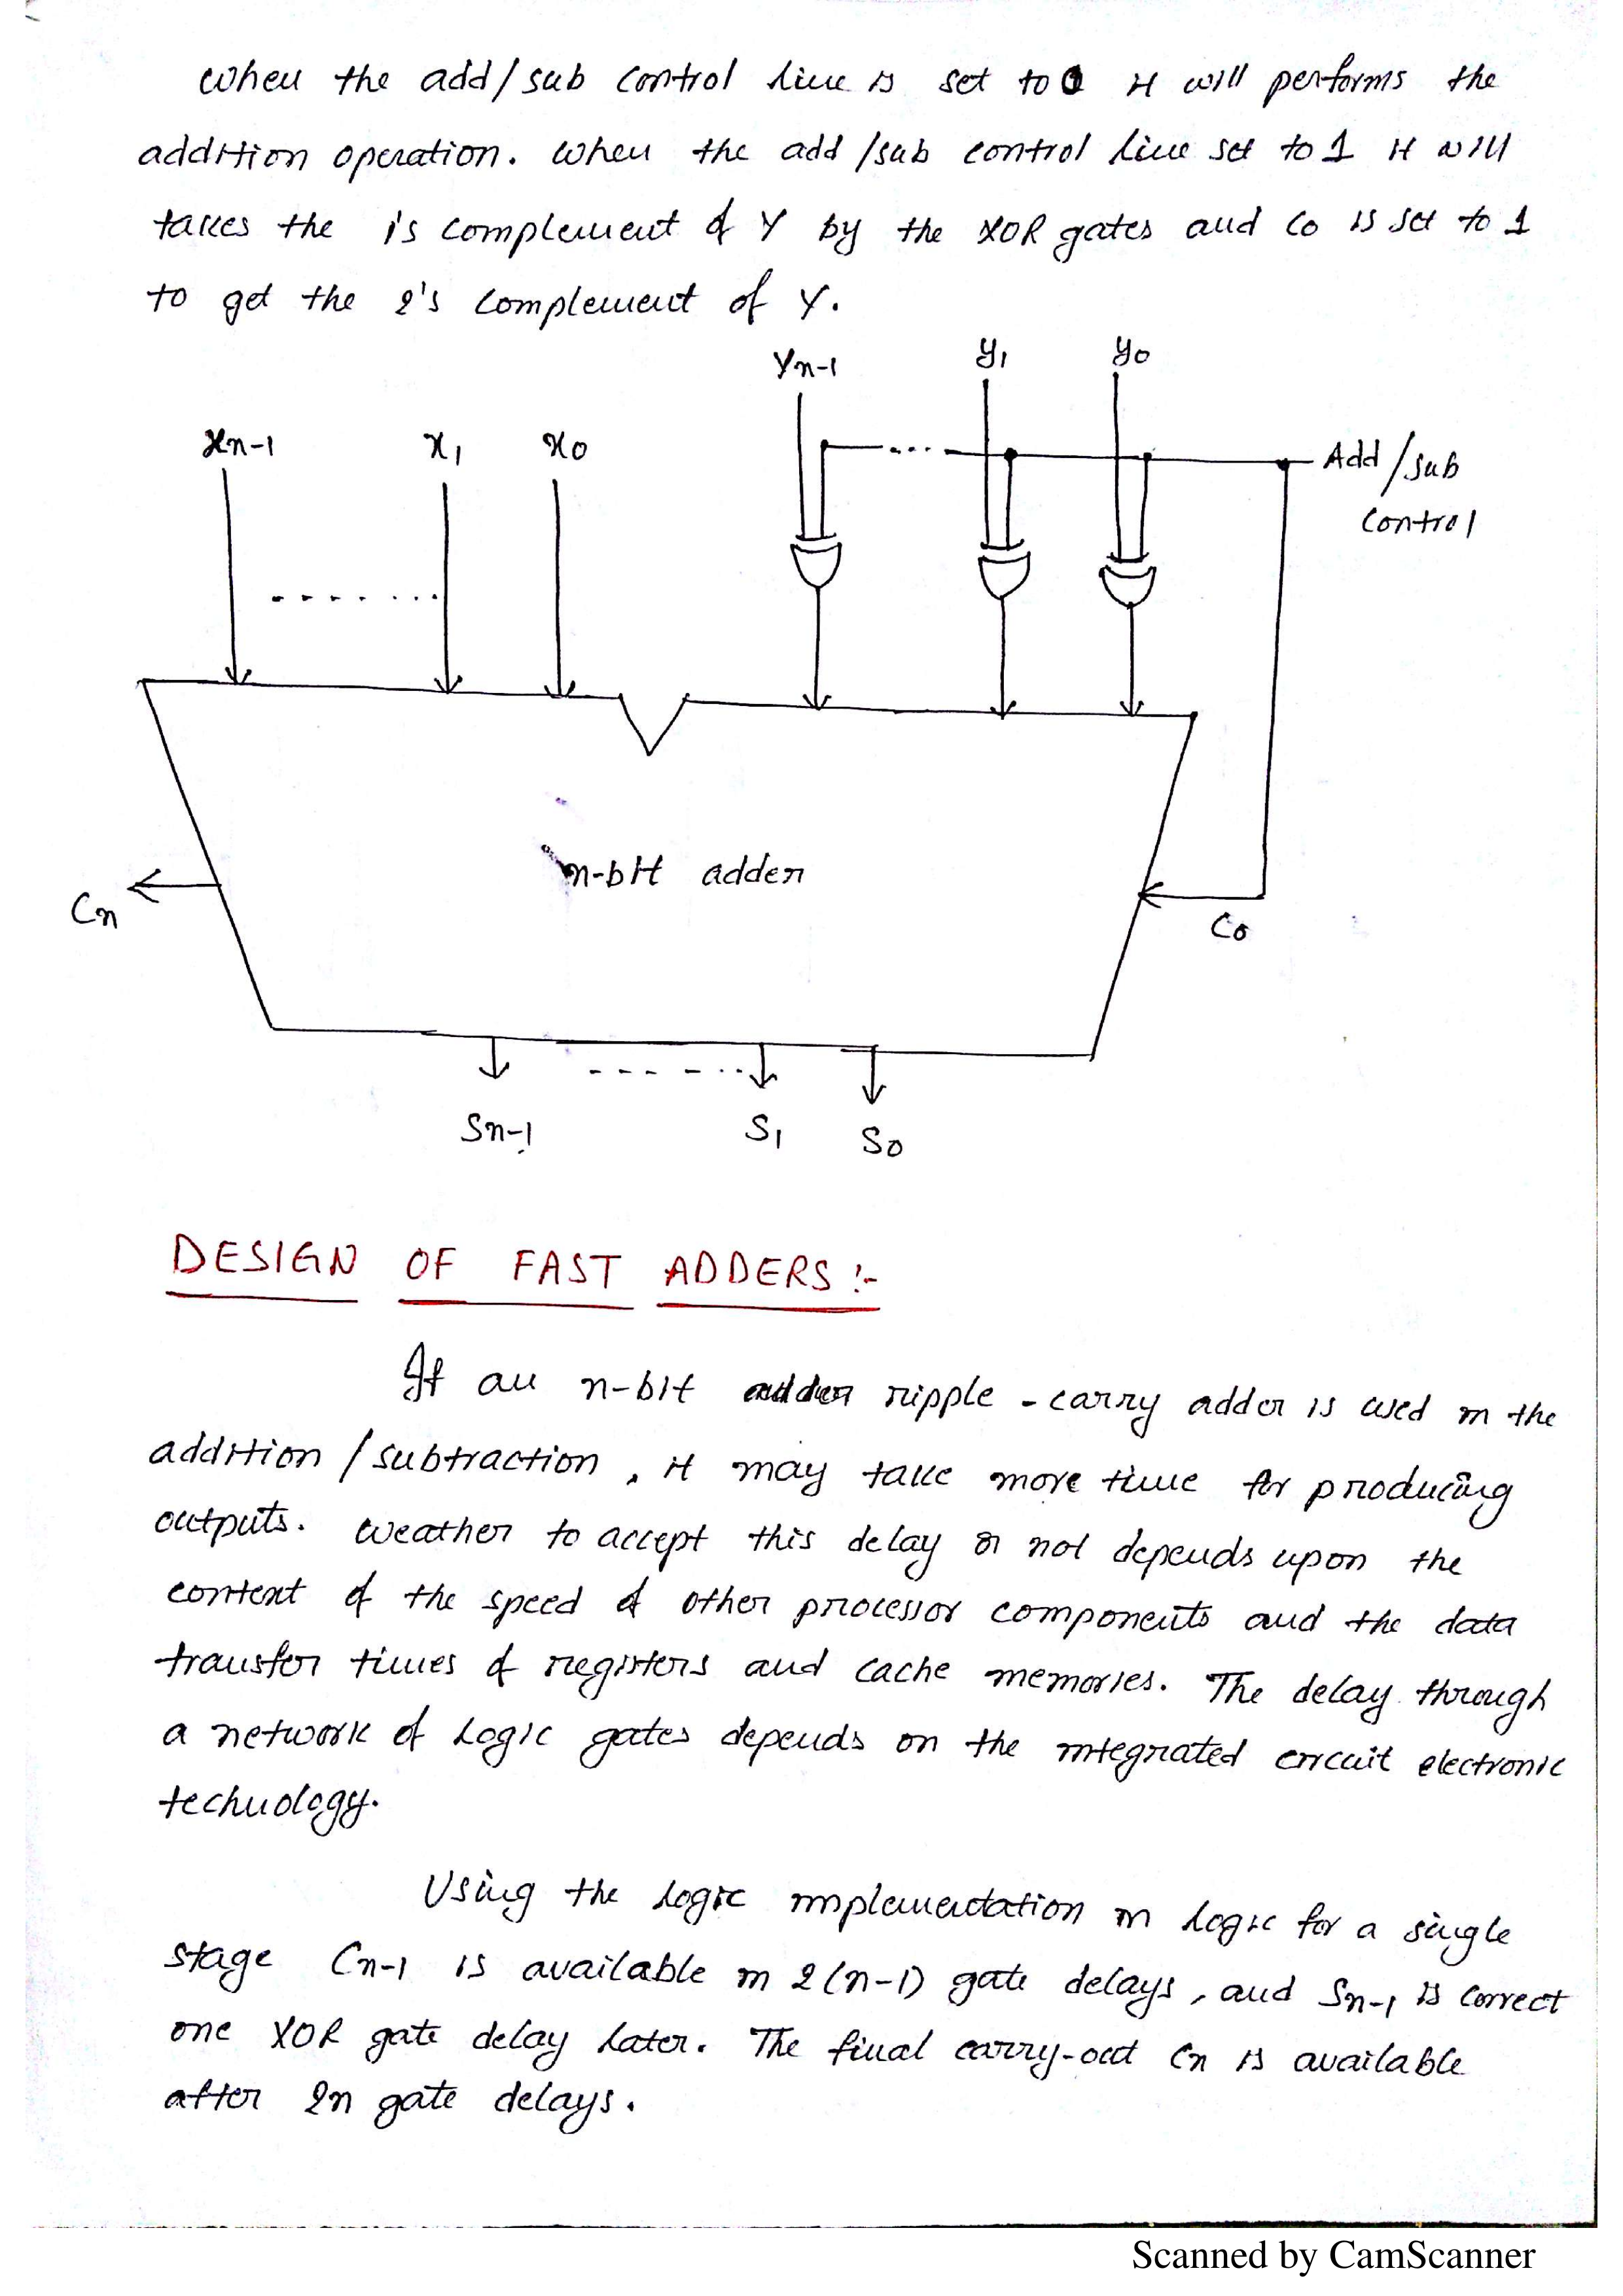 when the add/sub control line is set to 0 it will performs the
addition operation. when the add/sub control line set to 1 it will
takes the 1's complement of Y by the XOR gates and c0 is set to 1
to get the 2's complement of Y.
yn-1 y1 y0
xn-1 x1 x0
Add/sub
control
n-bit adder
Cn
C0
Sn-1 S1 S0
DESIGN OF FAST ADDERS :-
If an n-bit ripple-carry adder is used in the
addition/subtraction, it may take more time for producing
outputs. Weather to accept this delay or not depends upon the
context of the speed of other processor components and the data
transfer times of registers and cache memories. The delay through
a network of logic gates depends on the integrated circuit electronic
technology.
Using the logic implementation in logic for a single
stage Cn-1 is available in 2(n-1) gate delays, and Sn-1 is correct
one XOR gate delay later. The final carry-out Cn is available
after 2n gate delays.
Scanned by CamScanner